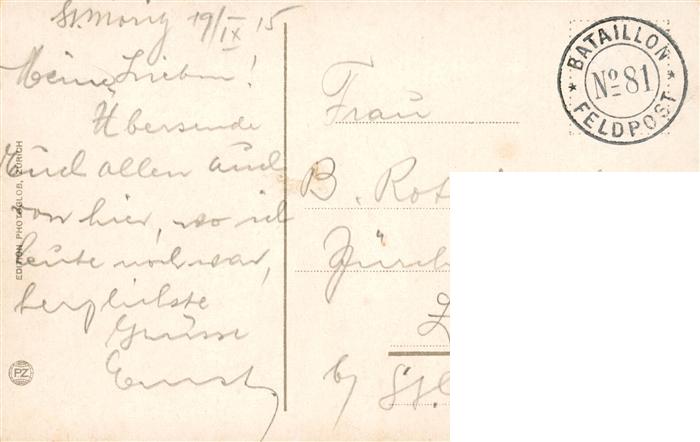 St. Moriz 19/IX 15
Meine Lieben!
Übersende
Euch allen auch
von hier, wo ich
heute noch war,
herzlichste
Grüsse
Ernst.
EDITION PHOTOGLOB, ZÜRICH
PZ
BATAILLON
No 81
FELDPOST
Frau
B.